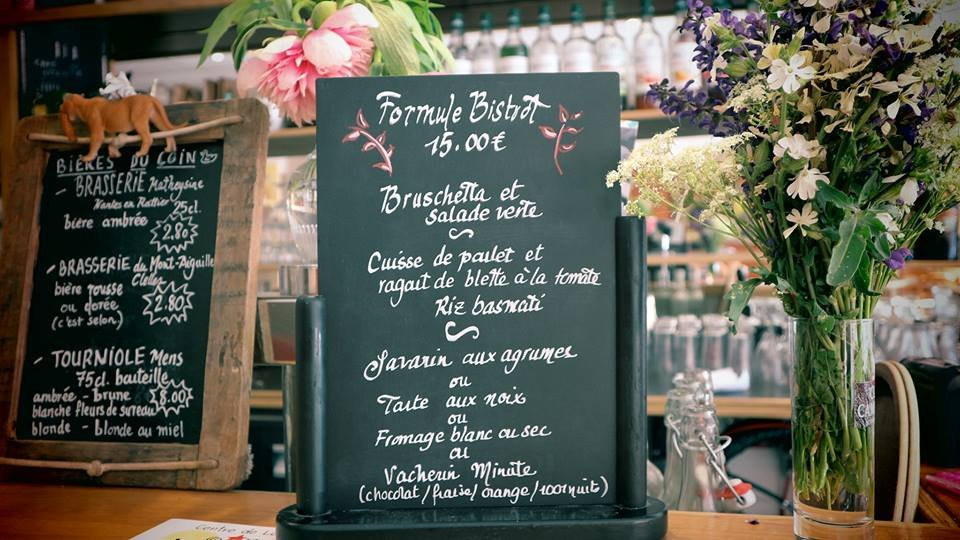 BIÈRES DU COIN
- BRASSERIE Matheysine
Nantes en Rattier
bière ambrée 25cl.
2.80
- BRASSERIE du Mont-Aiguille
Clelles
bière rousse
ou dorée
(c'est selon)
2.80
- TOURNIOLE Mens
75cl. bouteille
ambrée - brune
8.00
blanche fleurs de sureau
blonde - blonde au miel
Formule Bistrot
15.00€
Bruschetta et
salade verte
Cuisse de poulet et
ragout de blette à la tomate
Riz basmati
Savarin aux agrumes
ou
Tarte aux noix
ou
Fromage blanc ou sec
ou
Vacherin Minute
(chocolat/fraise/orange/1001 nuit)